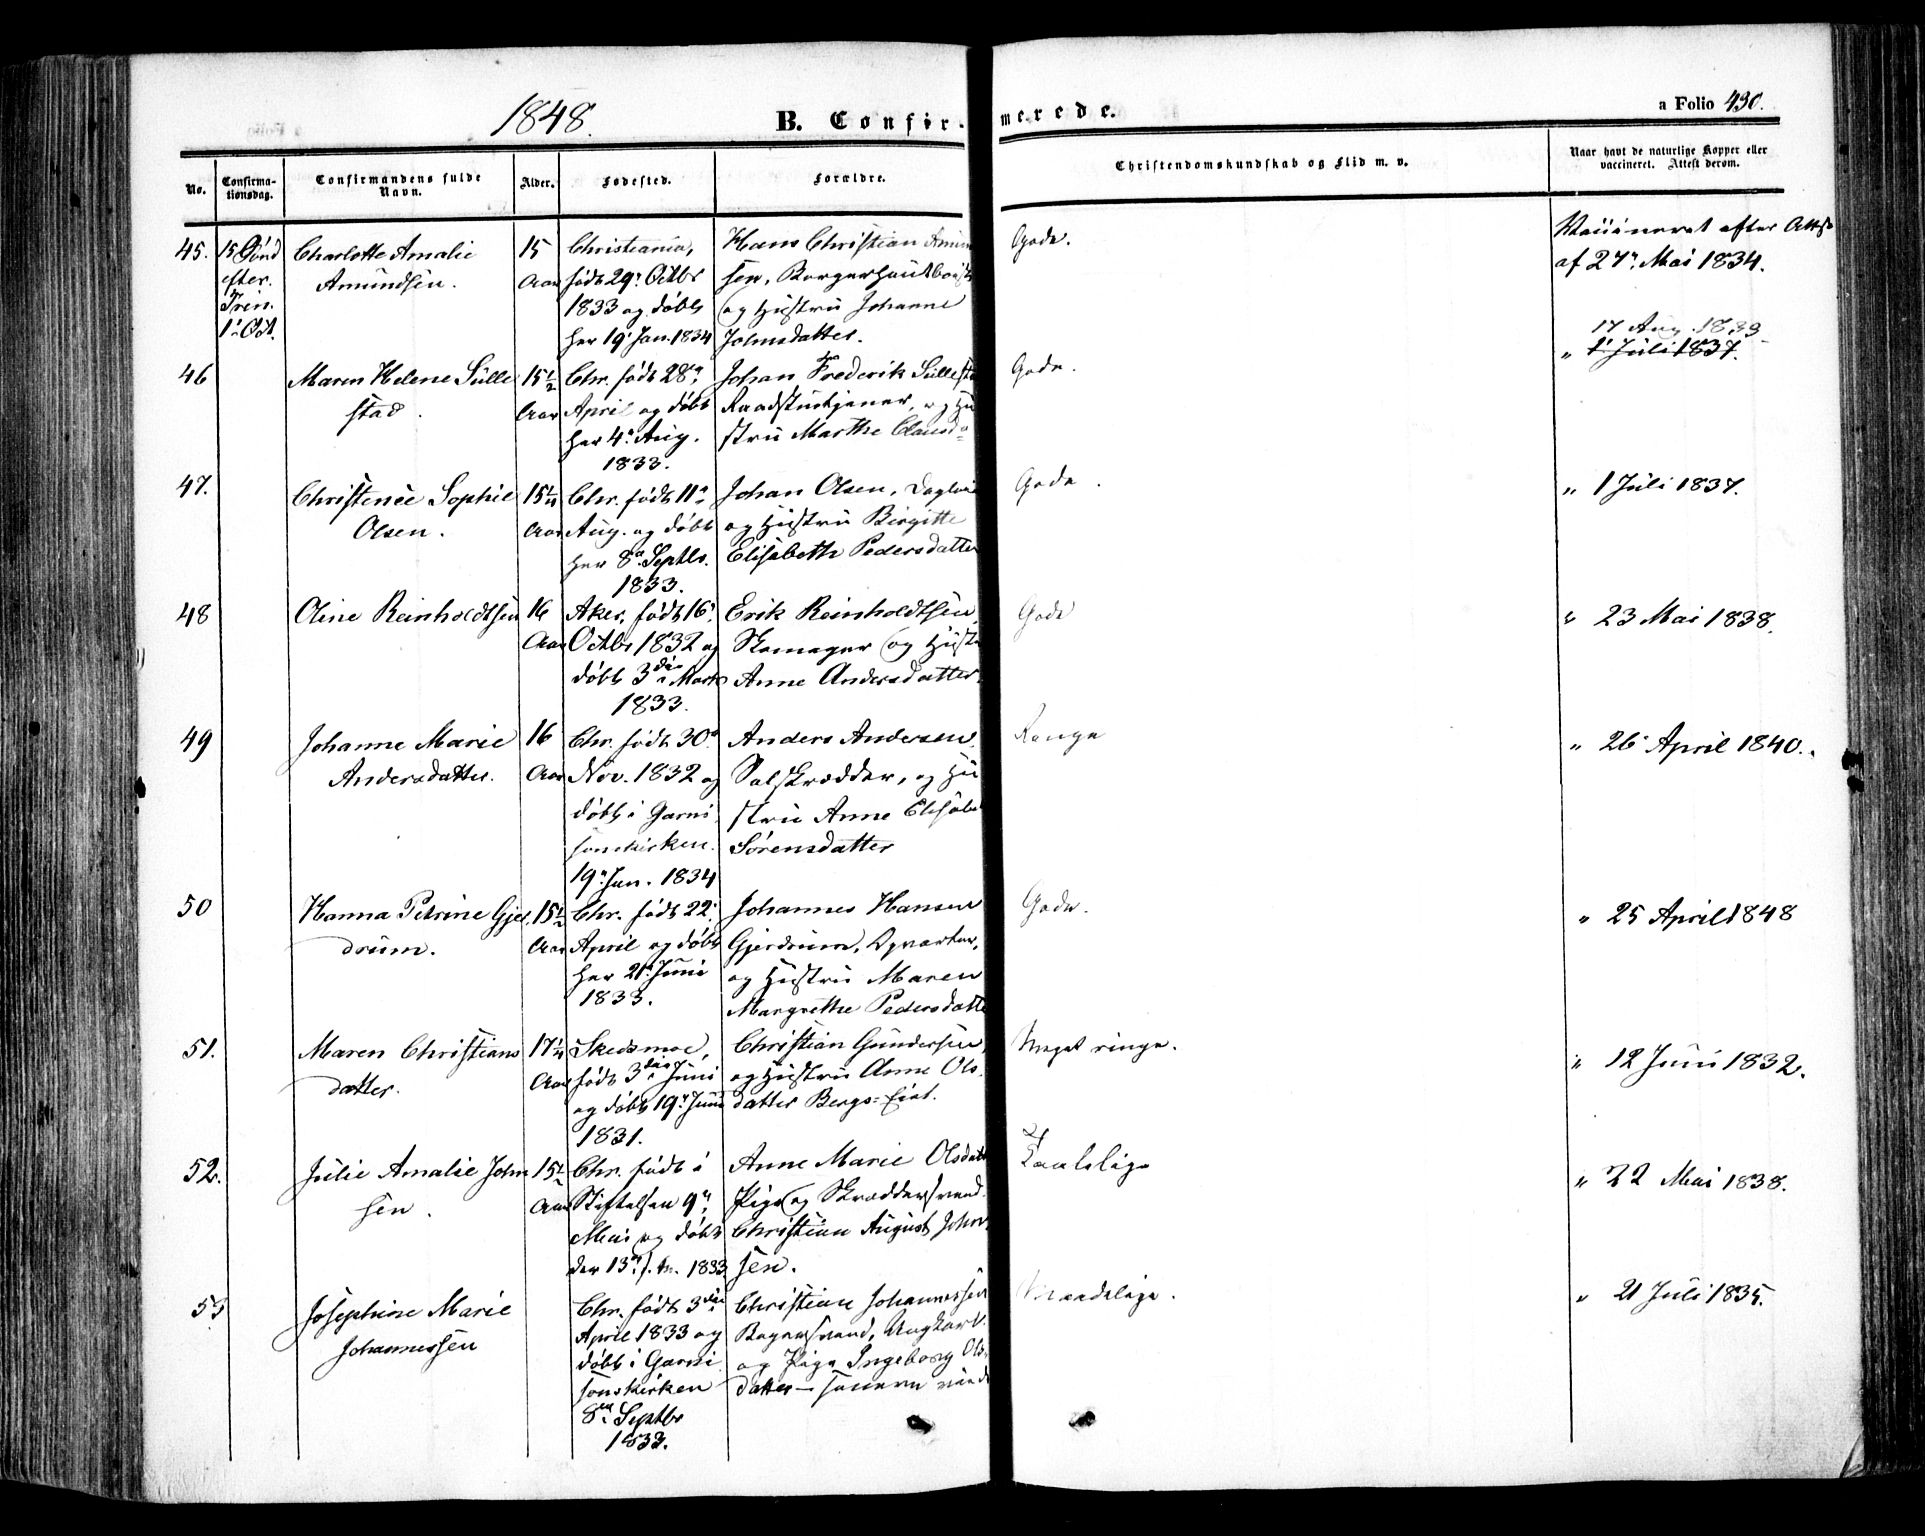 1848.
B. Confir-merede.
a Folio 430.
No.
Confirma-
tionsdag.
Confirmandens fulde
Navn.
Alder.
Fødested.
Forældre.
Christendomskundskab og Flid m. v.
Naar havt de naturlige Kopper eller
vaccineret. Attest derom.
45.
15 Sønd
efter.
Trin.
1. Oct.
Charlotte Amalie
Amundsen.
15
Aar
Christiania,
født 29. Octbr
1833 og døbt
her 19. Jan. 1834
Hans Christian Amun
sen, Borger
og Hustru Johanne
Johnsdatter.
Gode.
Vaccineret efter Attst
af 27. Mai 1834.
46
Maren Helene Sülle
stad.
15 1/2
Aar
Chr. født 28.
April og døbt
her 4. Aug.
1833.
Johan Frederik Süllesta
Raadstutjener, og Hu
stru Marthe Clausd=
Gode.
17 Aug. 1839
" 1. Juli 1837.
47.
Christence Sophie
Olsen.
Aar
Chr. født 11.
Aug. og døbt
her 8. Septbr.
1833.
Johan Olsen,
og Hustru Birgitte
Elisabeth Pedersdatter
Gode.
" 1 Juli 1837.
48
Oline Reinholdtsen
16
Aar
Aker, født 16.
Octbr 1832 og
døbt 3die Marts
1833.
Erik Reinholdtsen,
Skomager og Hustr
Anne Andersdatter.
Gode
" 23 Mai 1838.
49
Johanne Marie
Andersdatter.
16
Aar
Chr. født 30.
Nov. 1832 og
døbt i Garni
sonskirken.
19. Jan. 1834
Anders Andersen
og Hu
stru Anne Elisabe
Sørensdatter
" 26 April 1840.
50
Hanna Petrine Gjer
drum.
15 1/2
Aar
Chr. født 22.
April og døbt
her 21. Juni
1833.
Johannes Hansen
Gjerdrum, Opvarter,
og Hustru Maren
Margrethe Pedersdatte
Gode.
" 25 April 1848
51.
Maren Christians
datter.
17 1/4
Aar
Skedsmoe,
født 3die Juni
og døbt 19. Juni
1831.
Christian Gundersen,
og Hustru Anne Ols
datter Bergs=Eiet.
Meget ringe.
" 12 Juni 1832.
52.
Julie Amalie John
sen.
15 1/2
Aar
Chr. født i
Stiftelsen 9.
Mai og døbt
der 13. s. m. 1833.
Anne Marie Olsdatt
Pige og Skræddersvend
Christian August John
sen.
Taalelige
" 22 Mai 1838.
53
Josephine Marie
Johannessen
Chr. født 3die
April 1833 og
døbt i Garni
sonskirken
8. Septbr
1833.
Christian Johannessen
Bagersvend, Ungkarl
og Pige Ingeborg Ols
datter —
" 21 Juli 1835.